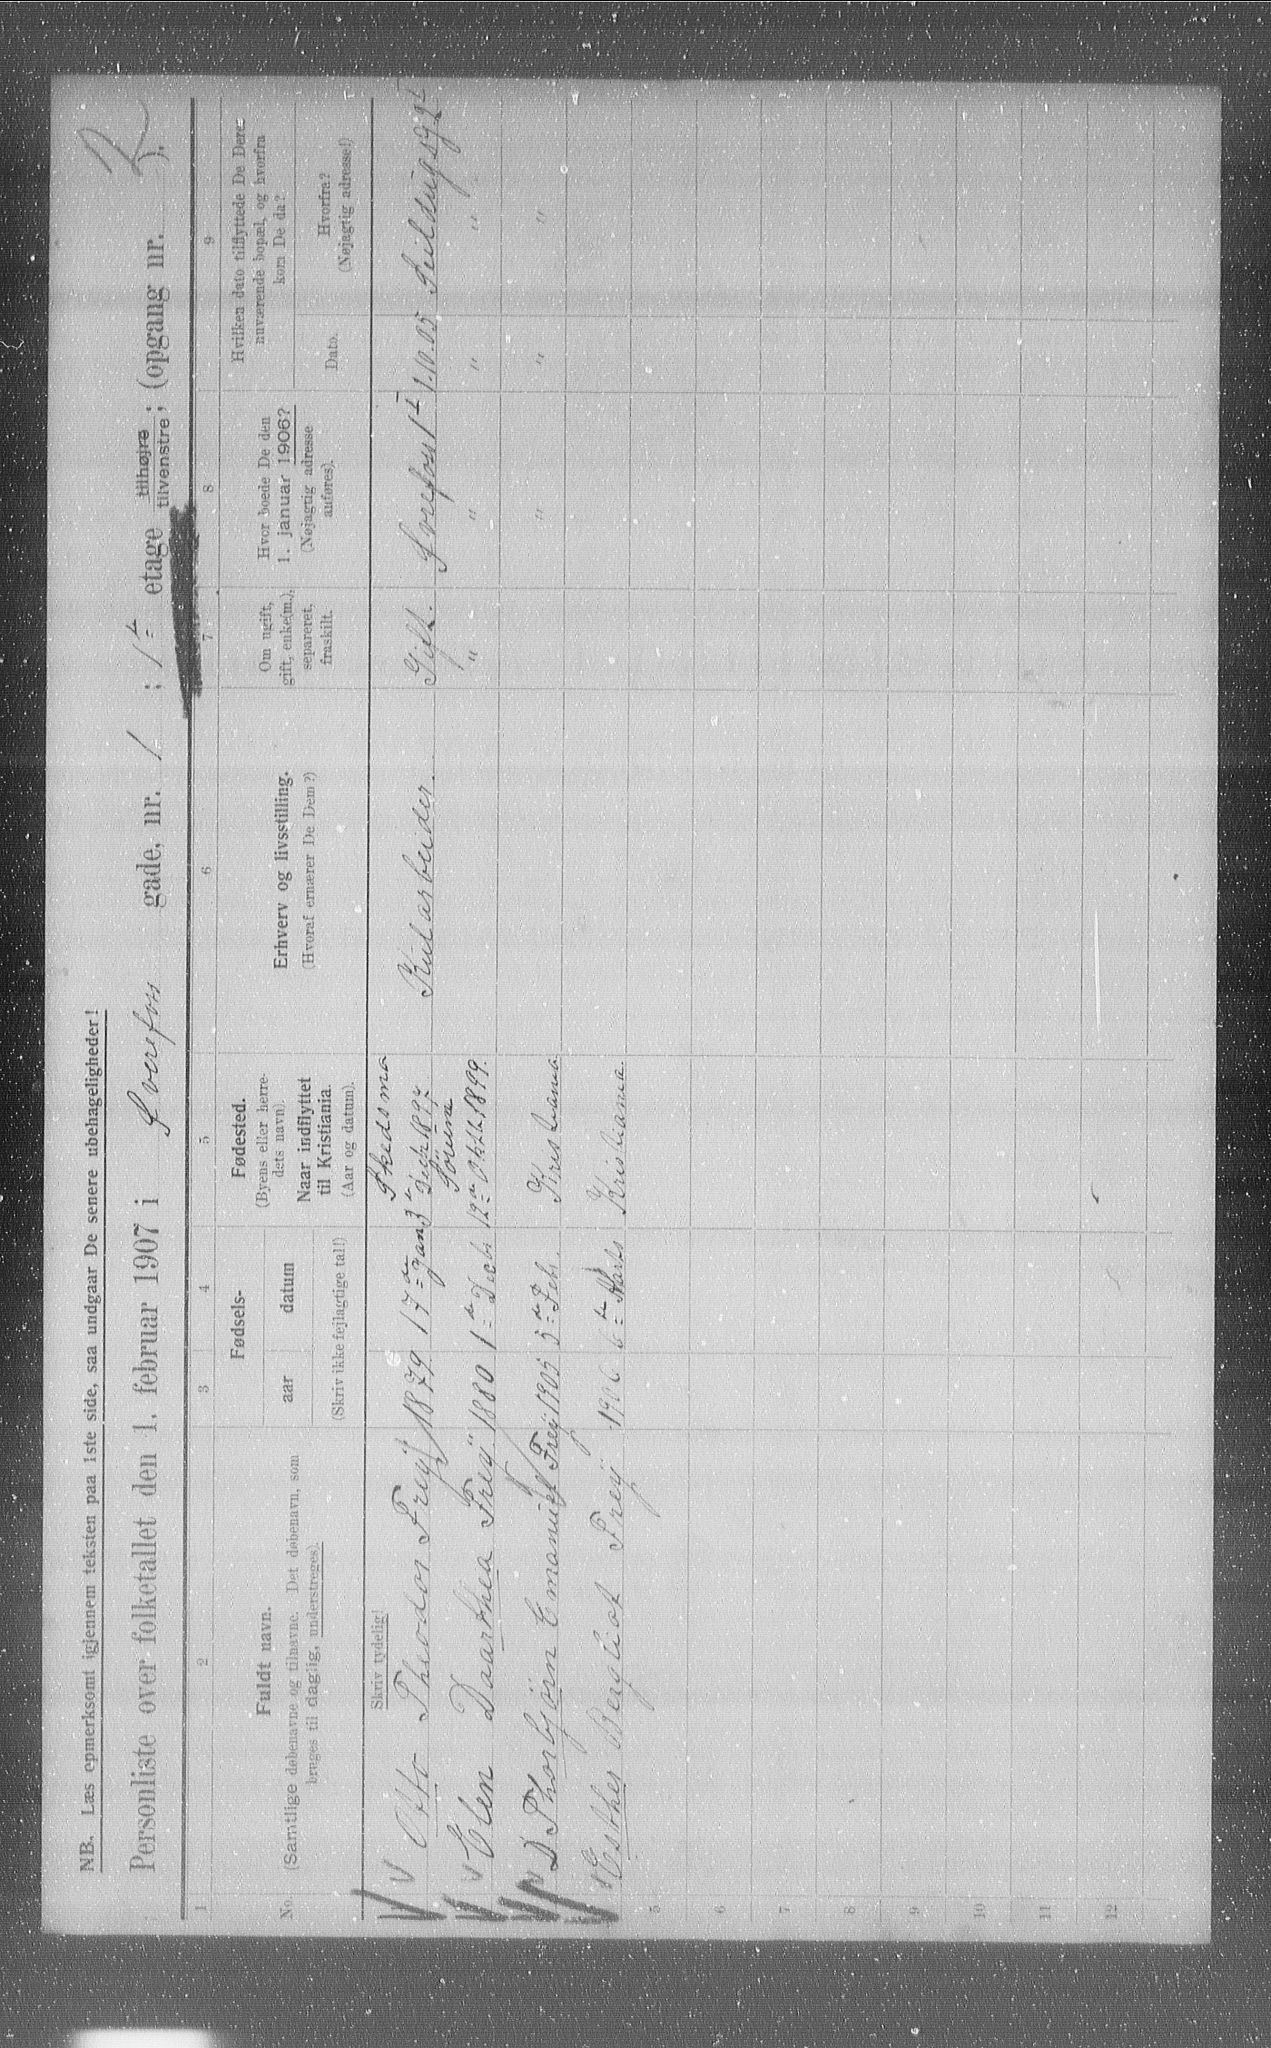 NB. Læs opmerksomt igjennem teksten paa 1ste side, saa undgaar De senere ubehageligheder!
Personliste over folketallet den 1. februar 1907 i Sverefos gade, nr. 1 ; 1ᵗᵉ etage tilhøjre tilvenstre; (opgang nr. ).
1 2 3 4 5 6 7 8 9
No.
Fuldt navn.
(Samtlige døbenavne og tilnavne. Det døbenavn, som
bruges til daglig, understreges).
Fødsels-
aar datum
(Skriv ikke fejlagtige tal!)
Fødested.
(Byens eller herre-
dets navn).
Naar indflyttet
til Kristiania.
(Aar og datum).
Erhverv og livsstilling.
(Hvoraf ernærer De Dem?)
Om ugift,
gift, enke(m.),
separeret,
fraskilt.
Hvor boede De den
1. januar 1906?
(Nøjagtig adresse
anføres).
Hvilken dato tilflyttede De Deres
nuværende bopæl, og hvorfra
kom De da?
Dato.
Hvorfra?
(Nøjagtig adresse!)
Skriv tydelig!
Skedsmo
Otto Theodor Freij 1879 17 de Jan 3 Decbr 1897 Kularbeider. Gift. Sverefos 1 1.10.05
Elen Daarthea Freij 1880 1 de Decb 12 te Oktb. 1899. " " " "
D Thorbjörn Emanuel Freij 1905 5 te Feb. Kristiania " " "
Esther Bergliot Freij 1906 6 te Marts Kristiania.
5
6
7
8
9
10
11
12